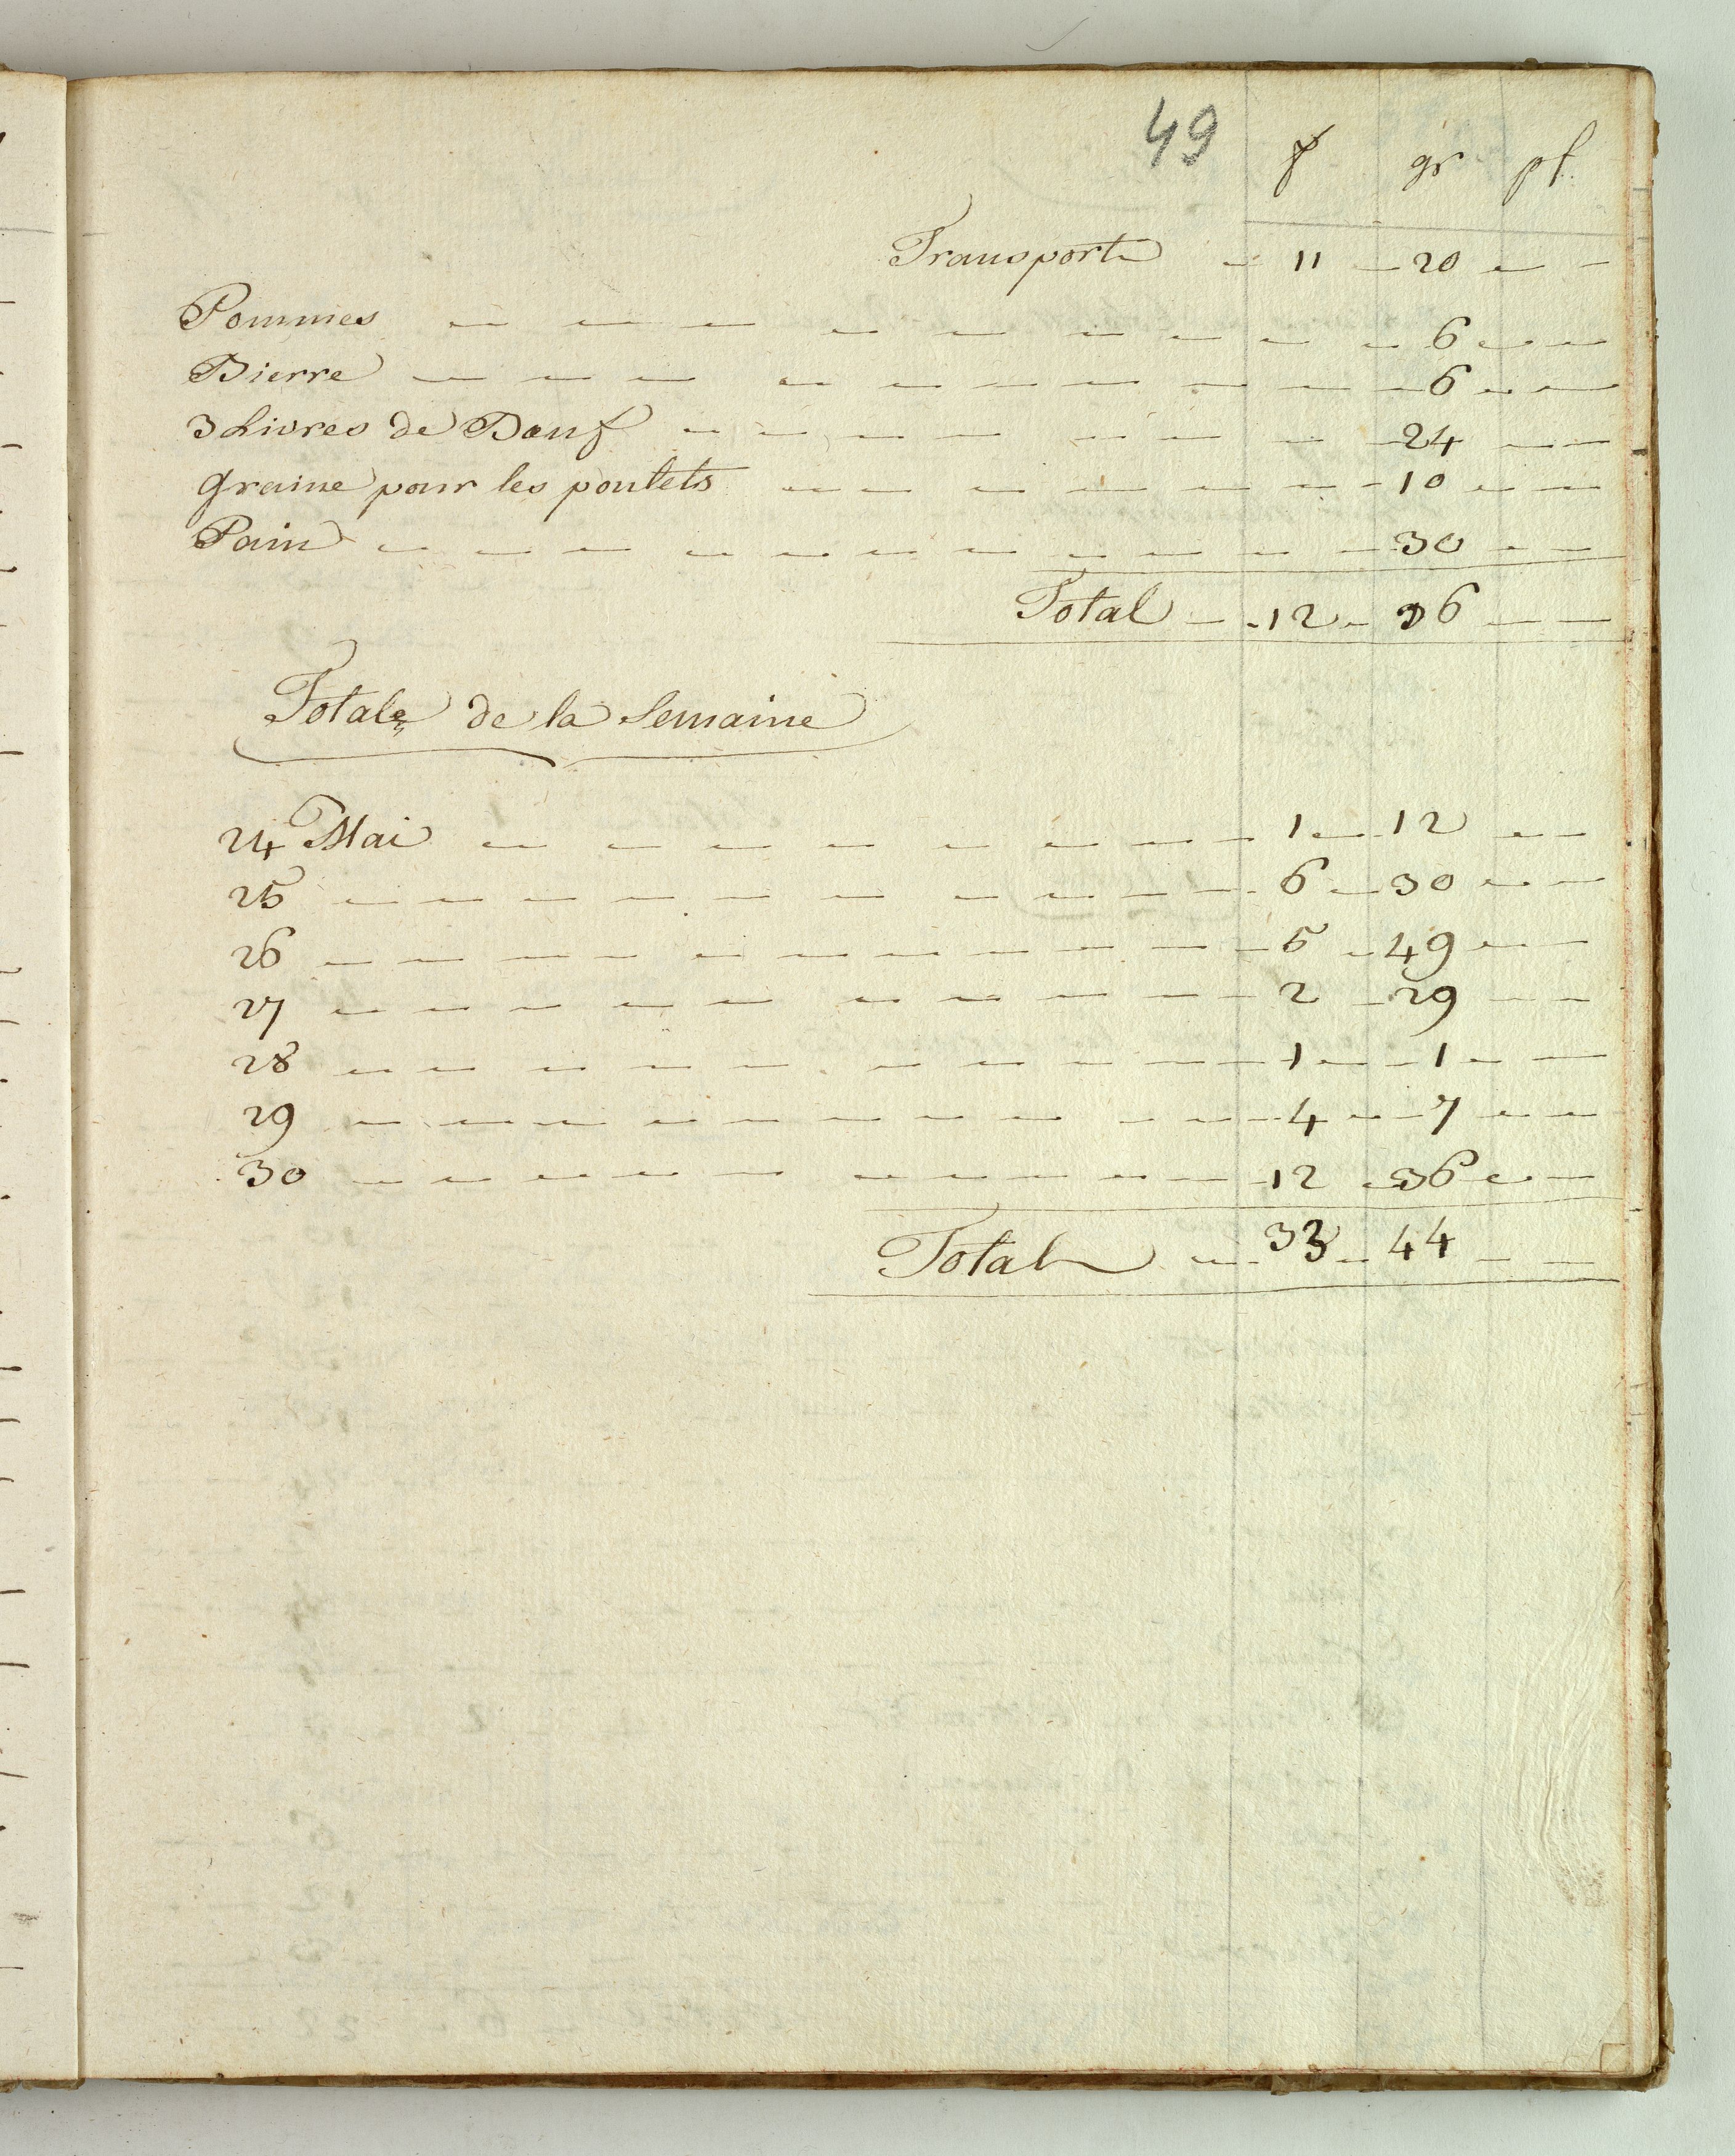 49
f gr pf.
Transport 11 20
Pommes 6
Bierre 6
3 Livres de Bœuf 24
graine pour les poulets 10
Pain 30
Total 12 36
Totale de la Semaine
24 Mai 1 12
25 6 30
26 5 49
27 2 29
28 1 1
29 4 7
30 12 36
Total 33 44